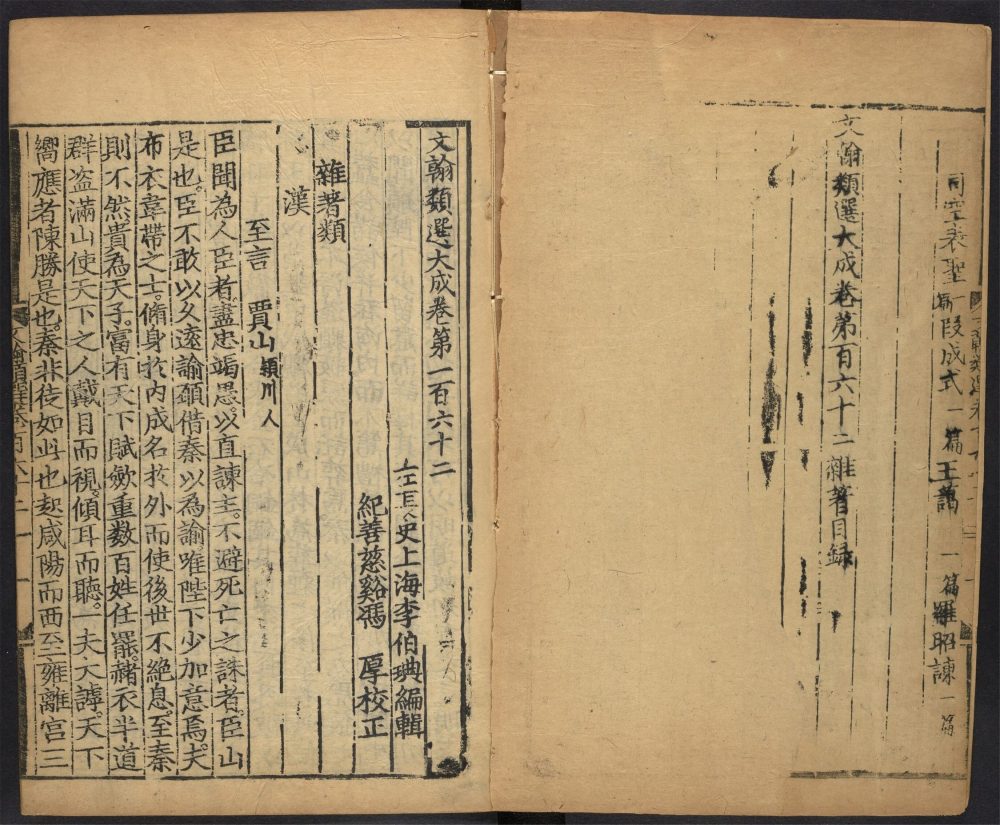 司空表聖一篇段成式一篇王藹一篇羅昭諫一篇
文翰類選大成卷第百六十二雜著目録
文翰類選大成卷第一百六十二
左長史上海李伯璵編輯
紀善慈谿馮厚校正
雜著類
漢
至言 賈山潁川人
臣聞為人臣者盡忠竭愚以直諫主不避死亡之誅者臣山
是也臣不敢以久遠諭願借秦以為諭唯陛下少加意焉夫
布衣韋帶之士脩身於内成名於外而使後世不絶息至秦
則不然貴為天子富有天下賦斂重數百姓任罷赭衣半道
群盗滿山使天下之人戴目而視傾耳而聽一夫大謼天下
嚮應者陳勝是也秦非徒如此也起咸陽而西至雍離宫三